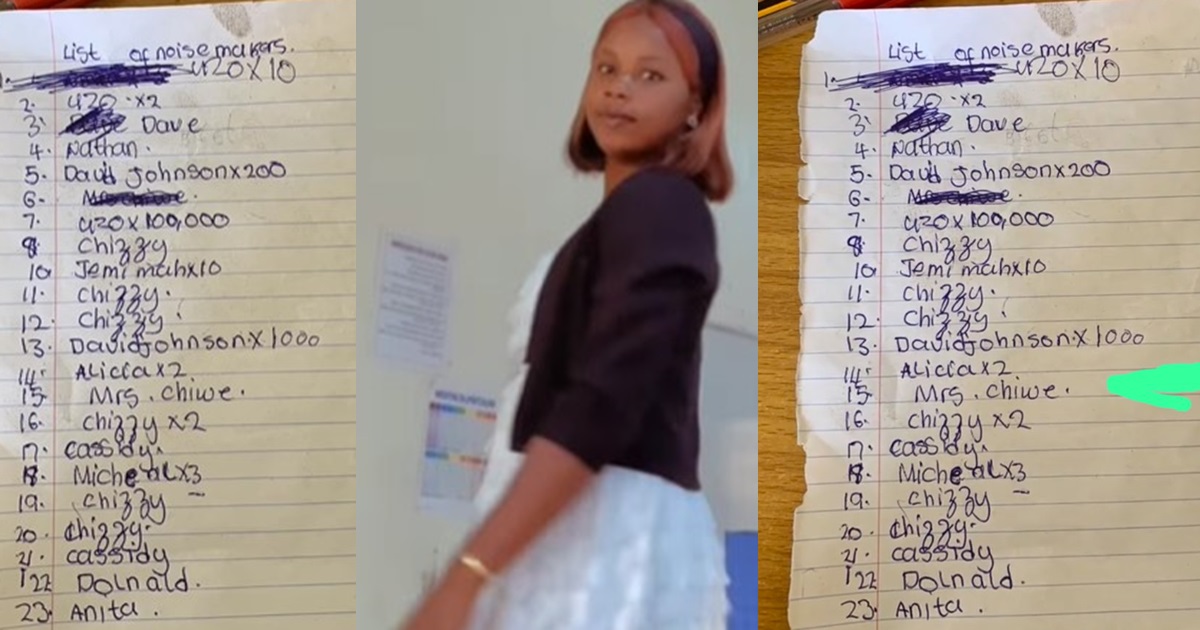 List of noise makers.
1. 420X10
2. 420 x2
3. Dave
4. Nathan.
5. David Johnsonx200
6-
7. 420x100,000
8. Chizzy
10 Jemimahx10
11. Chizzy.
12. Chizzy
13. DavidJohnson.X1000
14. Aliciax2
15 Mrs. Chiwe.
16. Chizzy x2
17. Cassidy.
18. Michealx3
19. Chizzy
20. Chizzy.
21. Cassidy
22 Dolnald.
23. Anita.
List of noise makers.
1. 420X10
2. 420 x2
3. Dave
4. Nathan.
5. David Johnsonx200
6-
7. 420x100,000
8. Chizzy
10 Jemimahx10
11. Chizzy.
12. Chizzy
13. DavidJohnson.X1000
14. Aliciax2
15 Mrs. Chiwe.
16. Chizzy x2
17. Cassidy.
18. Michealx3
19. Chizzy
20. Chizzy.
21. Cassidy
22 Dolnald.
23. Anita.